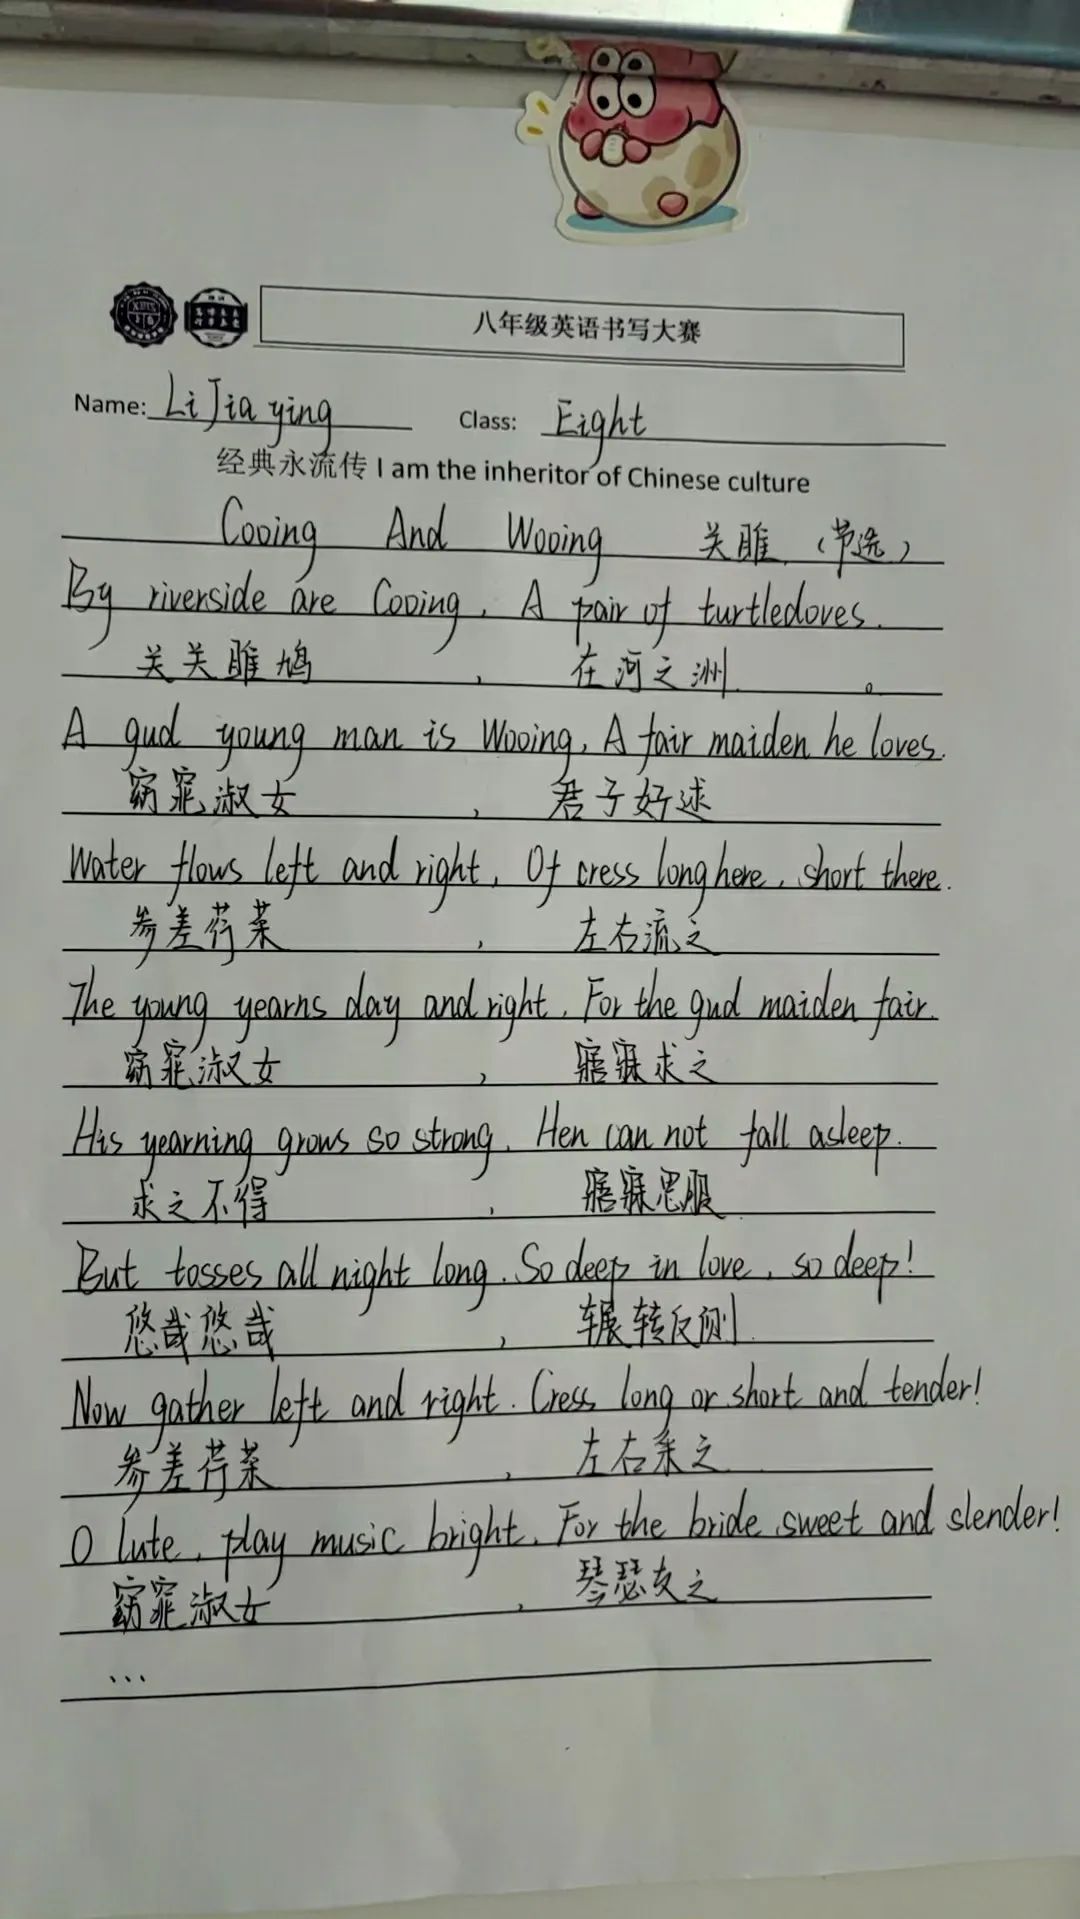 八年级英语书写大赛
Name: Li Jia ying Class: Eight
经典永流传 I am the inheritor of Chinese culture
Cooing And Wooing 关雎 (节选)
By riverside are Cooing, A pair of turtledoves.
关关雎鸠, 在河之洲。
A gud young man is Wooing, A fair maiden he loves.
窈窕淑女, 君子好逑
Water flows left and right, Of cress long here, short there.
参差荇菜, 左右流之
The young yearns day and right, For the gud maiden fair.
窈窕淑女, 寤寐求之
His yearning grows so strong, Hen can not fall asleep.
求之不得, 寤寐思服
But tosses all night long. So deep in love, so deep!
悠哉悠哉, 辗转反侧
Now gather left and right. Cress long or short and tender!
参差荇菜, 左右采之
O lute, play music bright, For the bride sweet and slender!
窈窕淑女, 琴瑟友之
...